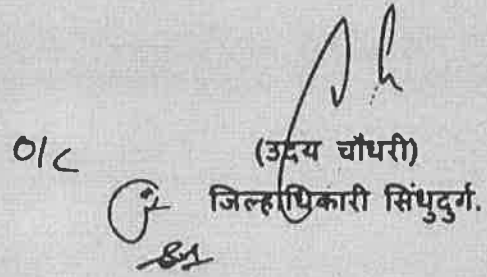 O/C
(उदय चौधरी)
जिल्हाधिकारी सिंधुदुर्ग.